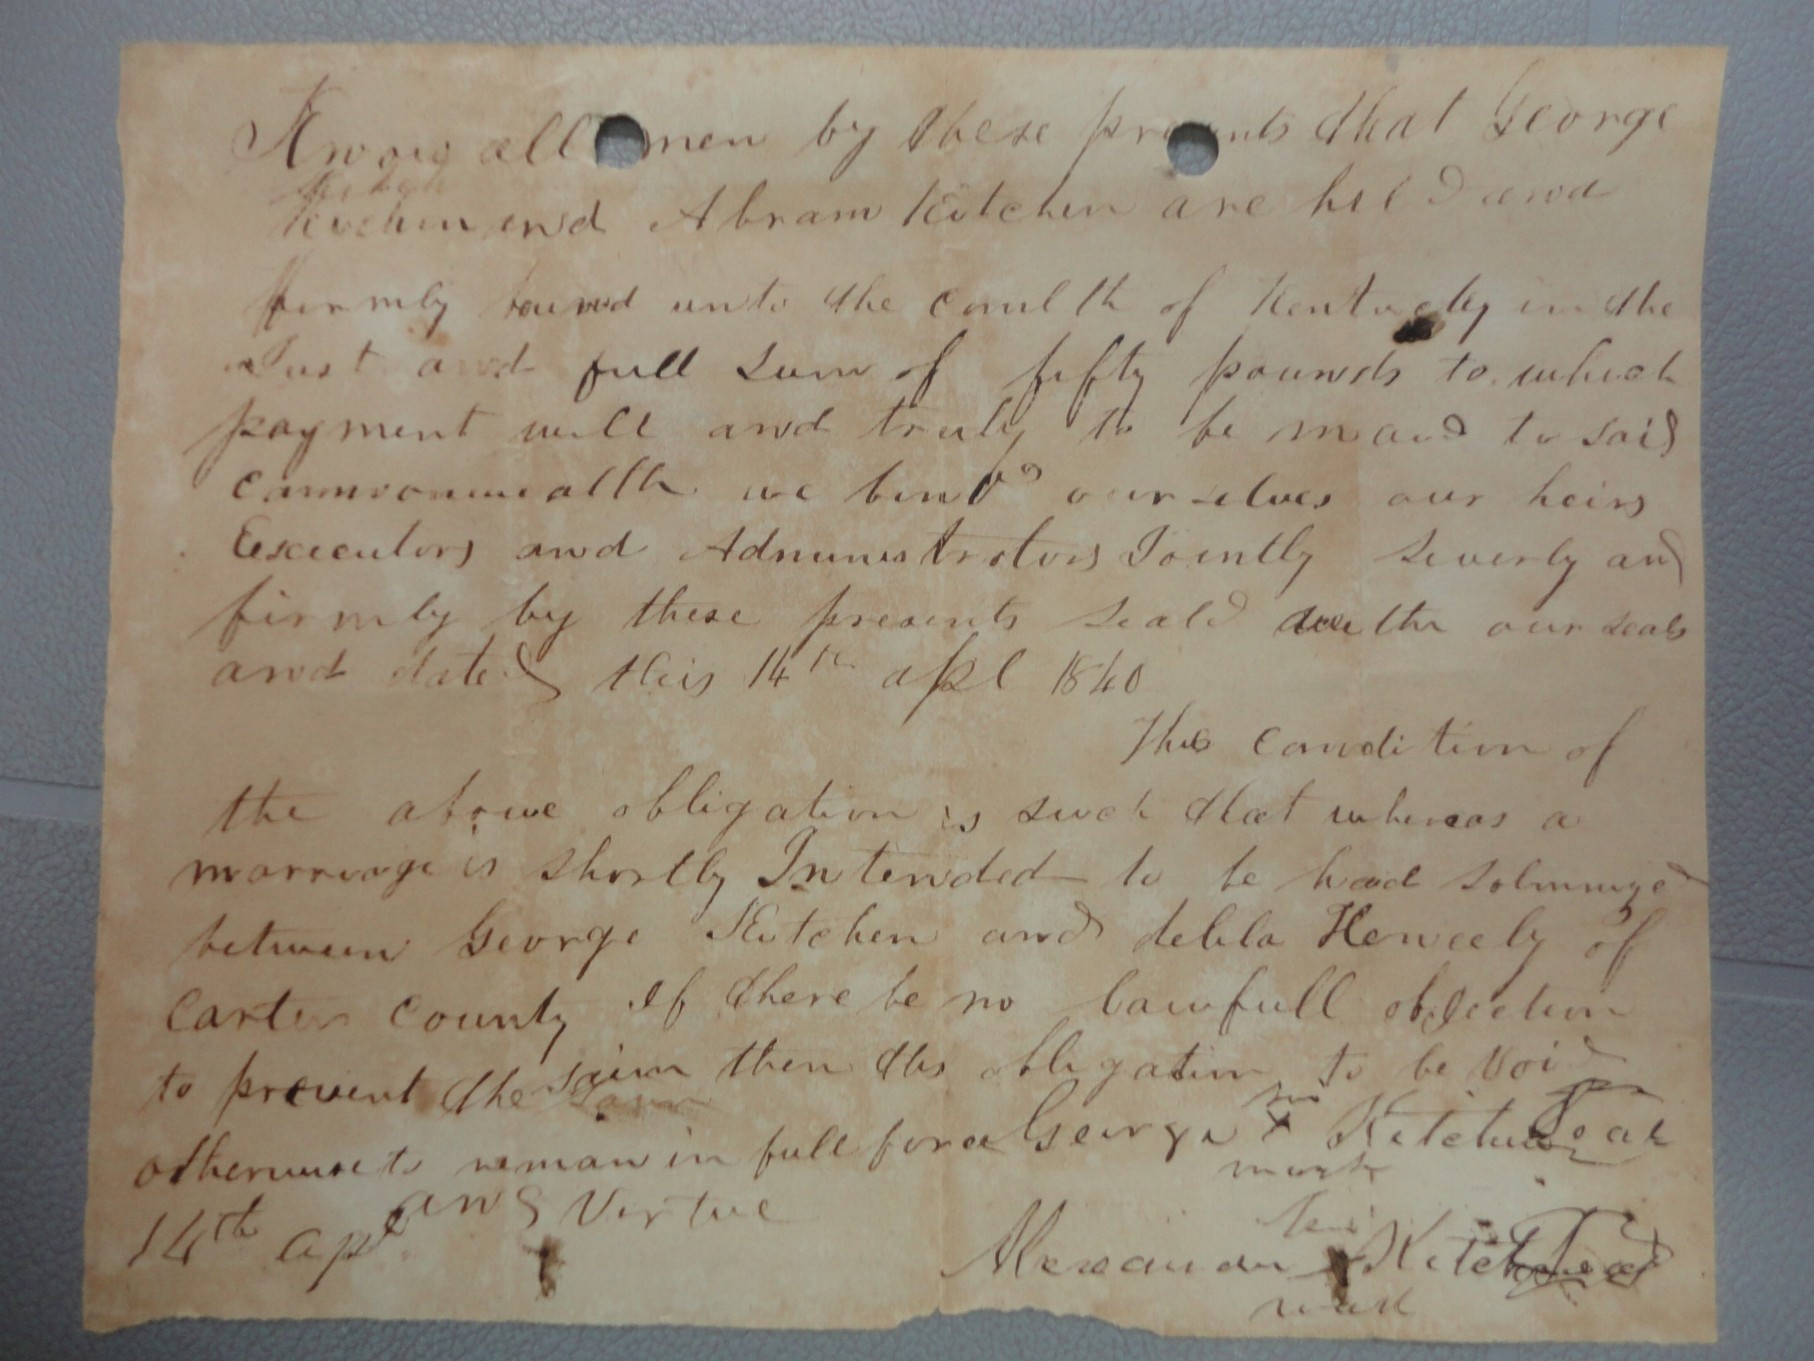 Know all men by these presents that George
Kitchen and Abram Kitchen are held and
firmly bound unto the Comlth of Kentucky in the
Just and full sum of fifty pounds to which
payment will and truly to be maid to said
Commonwealth we bind ourselves our heirs
Execcutors and Administrators Jointly Severly and
firmly by these presents seald with our seals
and dated this 14th apl 1840
The Condition of
the above obligation is such that whereas a
marriage is shortly Intended to be had solmnized
between George Kitchen and delila of
Carter County If there be no lawfull objection
to prevent the saim then this obligation to be void
otherwise to remain in full force George x Kitchen Seal
mark
14th apl and Virtue
his
Alexander x Kitchen Seal
mark